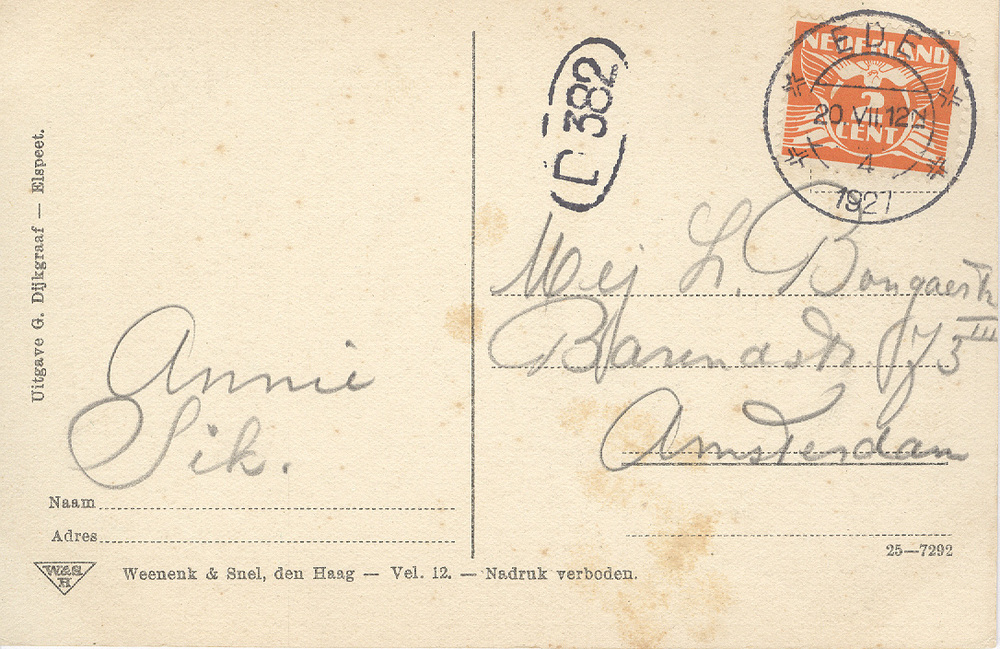 Uitgave G. Dijkgraaf — Elspeet.
Annie
Sik.
Naam
Adres
W&S.
H
Weenenk & Snel, den Haag — Vel. 12. — Nadruk verboden.
D 382
NEDERLAND
2
CENT
EDE
20. VII. 12N
4
1927
Mej L. Bongaerts
Barendstr. 75 III
Amsterdam
25—7292